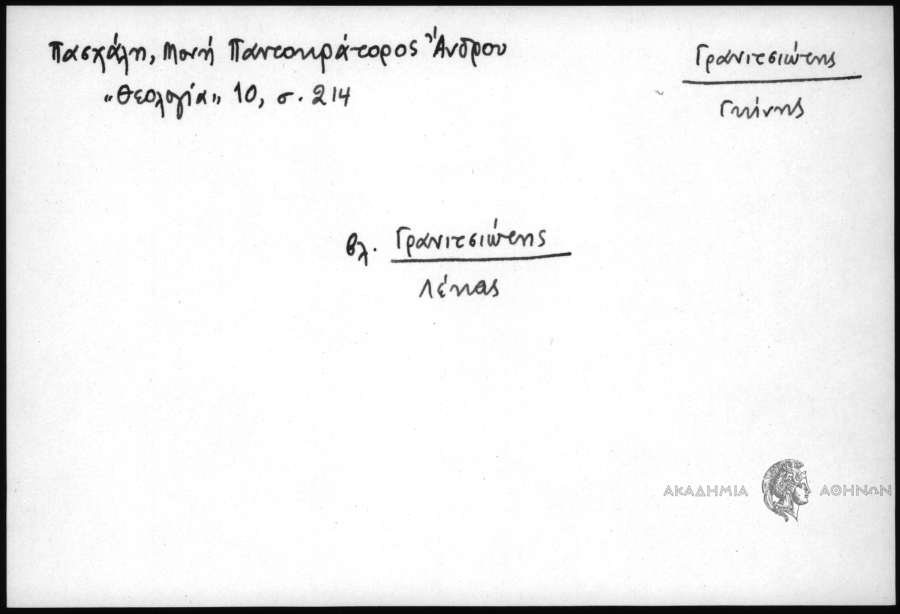 Πασχάλη, Μονή Παντοκράτορος Ἄνδρου
"Θεολογία" 10, σ. 214
Γρανιτσιώτης
Γκίνης
βλ. Γρανιτσιώτης
Λέκας
ΑΚΑΔΗΜΙΑ ΑΘΗΝΩΝ